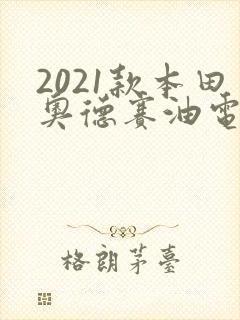 2021款本田
奥德赛油電
格朗茅臺